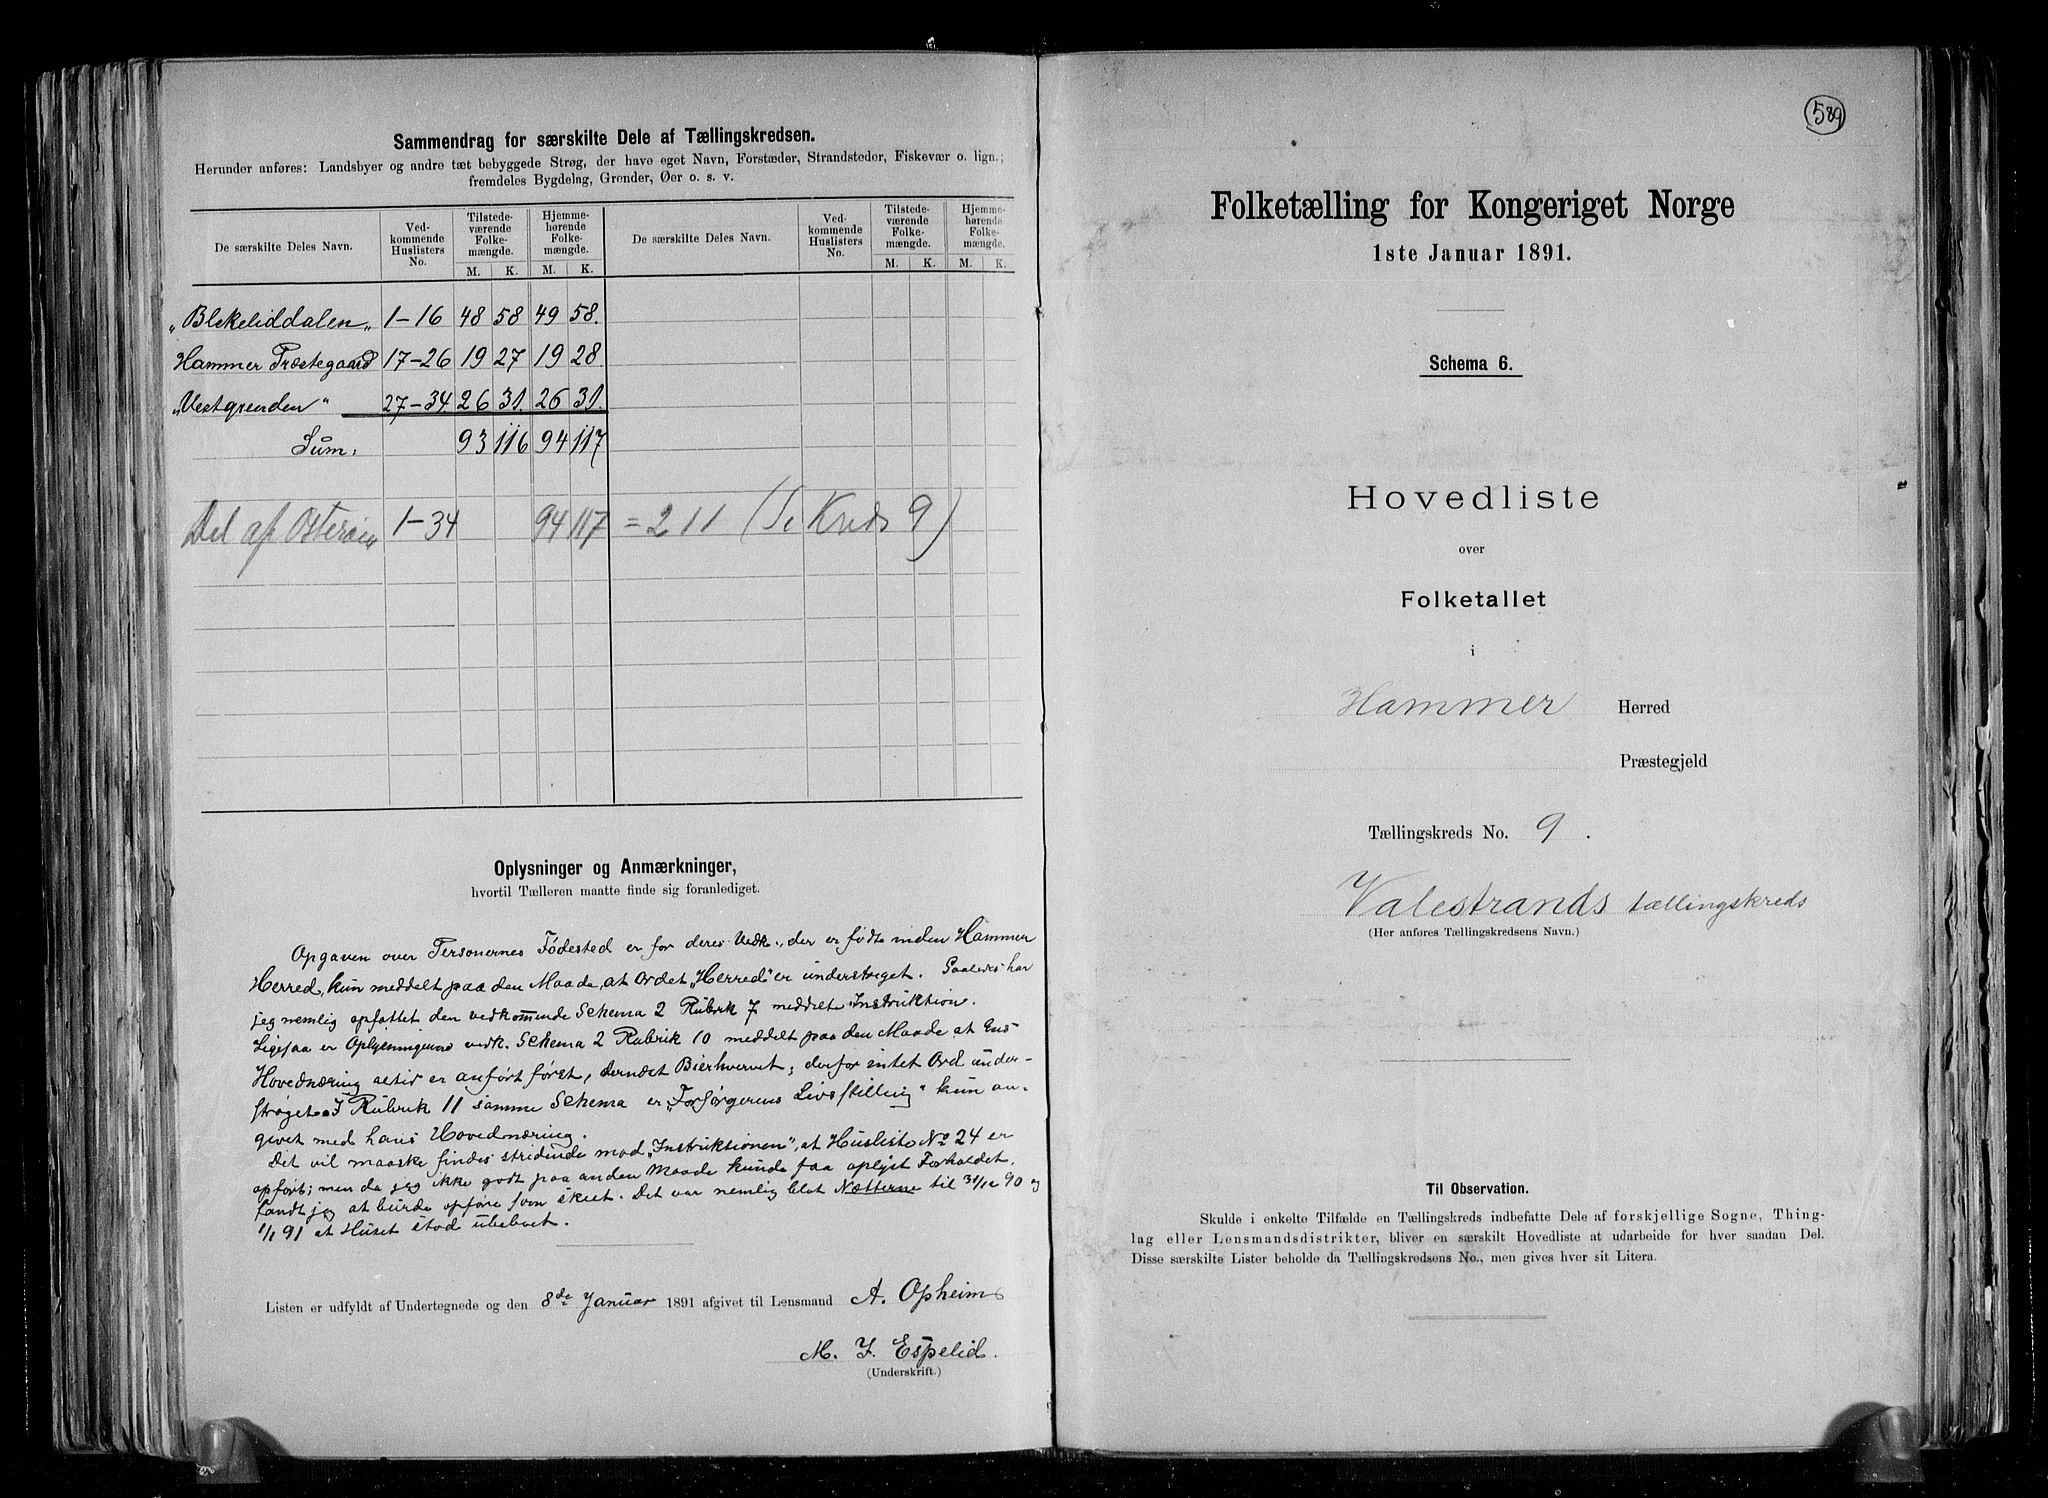 Sammendrag for særskilte Dele af Tællingskredsen.
Herunder anføres: Landsbyer og andre tæt bebyggede Strøg, der have eget Navn, Forstæder, Strandsteder, Fiskevær o. lign.;
fremdeles Bygdelag, Grender, Øer o. s. v.
De særskilte Deles Navn. Vedkommende Huslisters No. Tilstedeværende Folkemængde. Hjemmehørende Folkemængde. De særskilte Deles Navn. Vedkommende Huslisters No. Tilstedeværende Folkemængde. Hjemmehørende Folkemængde.
M. K. M. K. M. K. M. K.
„Blekeliddalen„ 1–16 48 58 49 58.
Hammer Præstegaard 17–26 19 27 19 28
„Vestgrenden" 27–34 26 31. 26 31.
Sum: 93 116 94 117
Del af Osterøen 1–34 94 117 = 211 (Se Kreds 9)
Oplysninger og Anmærkninger,
hvortil Tælleren maatte finde sig foranlediget.
Opgaven over Personernes Födested er for deres Vedk., der er födte inden Hammer
Herred, kun meddelt paa den Maade, at Ordet „Herred" er understreget. Saaledes har
jeg nemlig opfattet den vedkommende Schema 2 Rubrik 7 meddelte Instruktion.
Ligesaa er Oplysningerne vedk. Schema 2 Rubrik 10 meddelt paa den Maade at Ens
Hovednæring altid er anfört først, dernæst Bierhvervet; derfor intet Ord under-
strøget. I Rubrik 11 samme Schema er „Forsørgerens Livsstilling" kun an-
givet med hans Hovednæring.
Det vil maaske findes stridende mod „Instruktionen", at Husliste No 24 er
opfört; men da jeg ikke godt paa anden Maade kunde faa oplyst Forholdet,
fandt jeg at burde opføre som skeet. Det var nemlig blot Nætterne til 31/12 90 og
1/1 91 at Huset stod ubeboet.
Listen er udfyldt af Undertegnede og den 8de Januar 1891 afgivet til Lensmand A. Opheim
M. J. Espelid.
(Underskrift.)
589
Folketælling for Kongeriget Norge
1ste Januar 1891.
Schema 6.
Hovedliste
over
Folketallet
i
Hammer Herred
Præstegjeld
Tællingskreds No. 9.
Valestrands tællingskreds
(Her anføres Tællingskredsens Navn.)
Til Observation.
Skulde i enkelte Tilfælde en Tællingskreds indbefatte Dele af forskjellige Sogne, Thing-
lag eller Lensmandsdistrikter, bliver en særskilt Hovedliste at udarbeide for hver saadan Del.
Disse særskilte Lister beholde da Tællingskredsens No., men gives hver sit Litera.